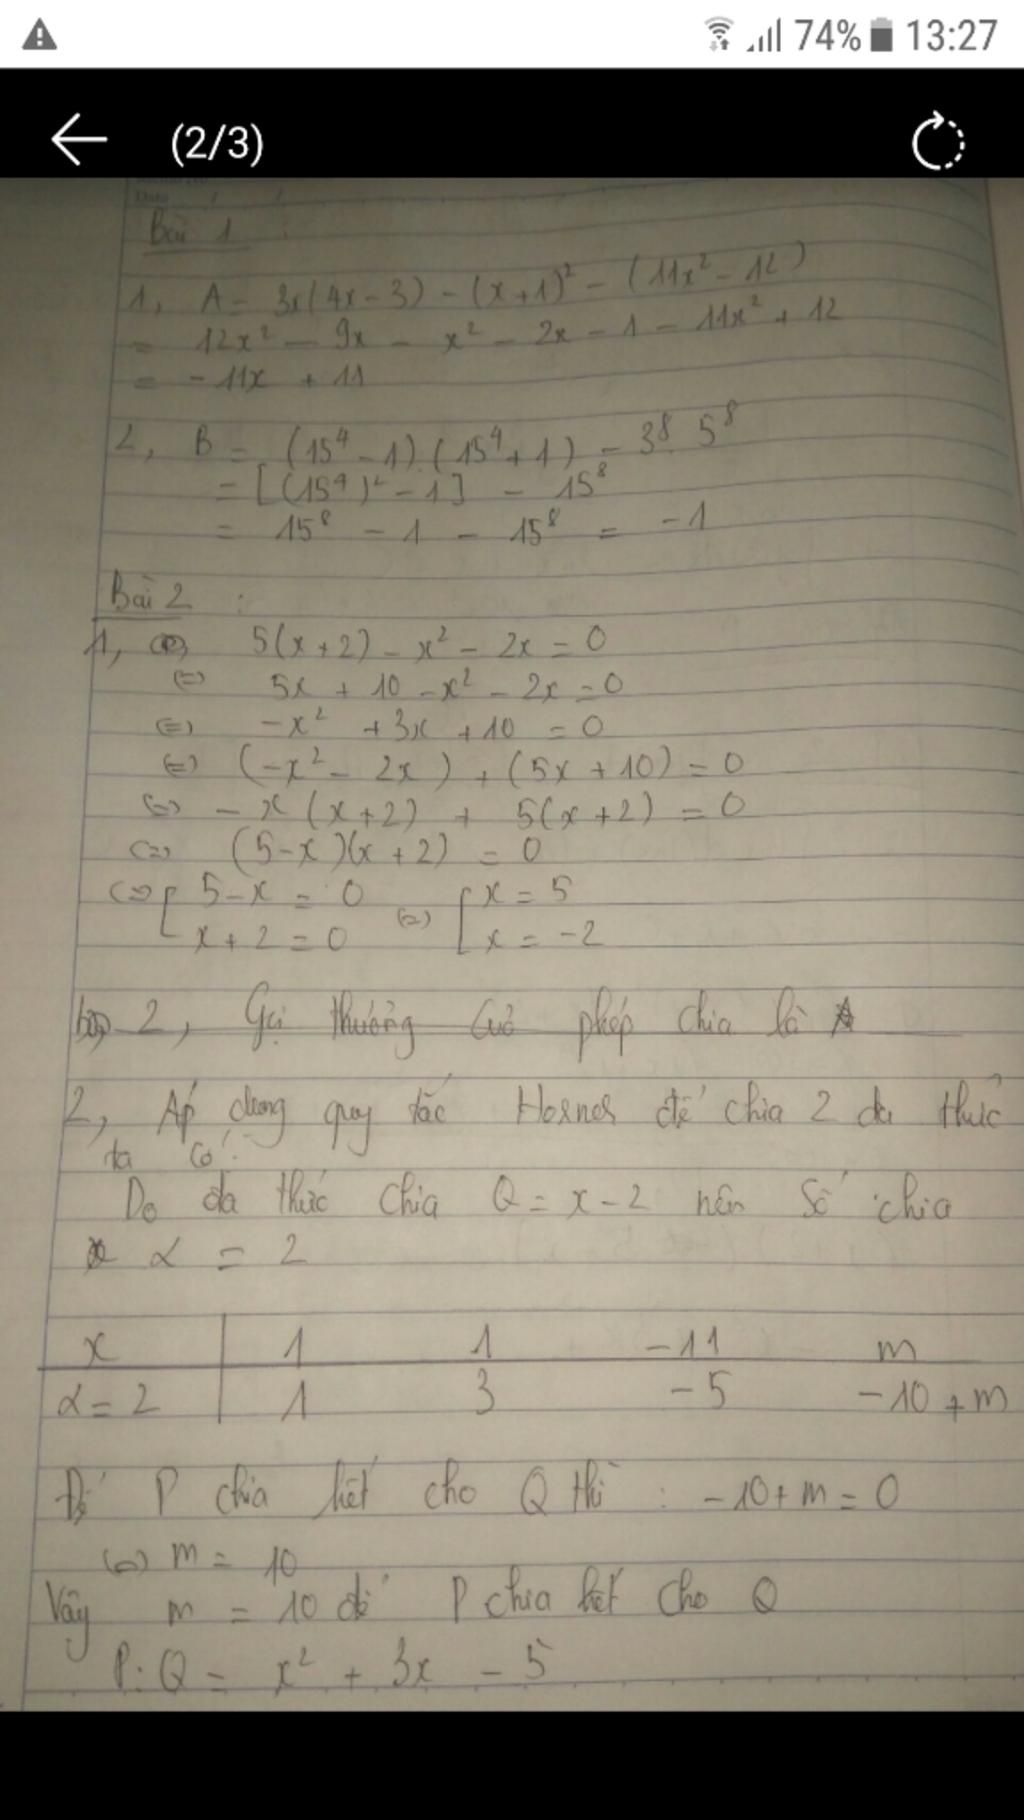 74% 13:27
(2/3)
Bài 1 :
1, A = 3x(4x - 3) - (x+1)² - (11x² - 12)
= 12x² - 9x - x² - 2x - 1 - 11x² + 12
= -11x + 11
2, B = (15⁴ - 1).(15⁴ + 1) - 3⁸.5⁸
= [(15⁴)² - 1] - 15⁸
= 15⁸ - 1 - 15⁸ = -1
Bài 2 :
1, 5(x+2) - x² - 2x = 0
(=) 5x + 10 - x² - 2x = 0
(=) -x² + 3x + 10 = 0
(=) (-x² - 2x) + (5x + 10) = 0
(=) -x(x+2) + 5(x+2) = 0
(=) (5-x)(x+2) = 0
(=) [ 5-x = 0 (=) [ x = 5
x+2 = 0 x = -2
2, Gọi thương của phép chia là A
2, Áp dụng quy tắc Horner để chia 2 đa thức
ta có:
Do đa thức chia Q = x-2 nên số chia
α = 2
x 1 1 -11 m
α = 2 1 3 -5 -10 + m
Để P chia hết cho Q thì : -10 + m = 0
(=) m = 10
Vậy m = 10 để P chia hết cho Q
P:Q = x² + 3x - 5